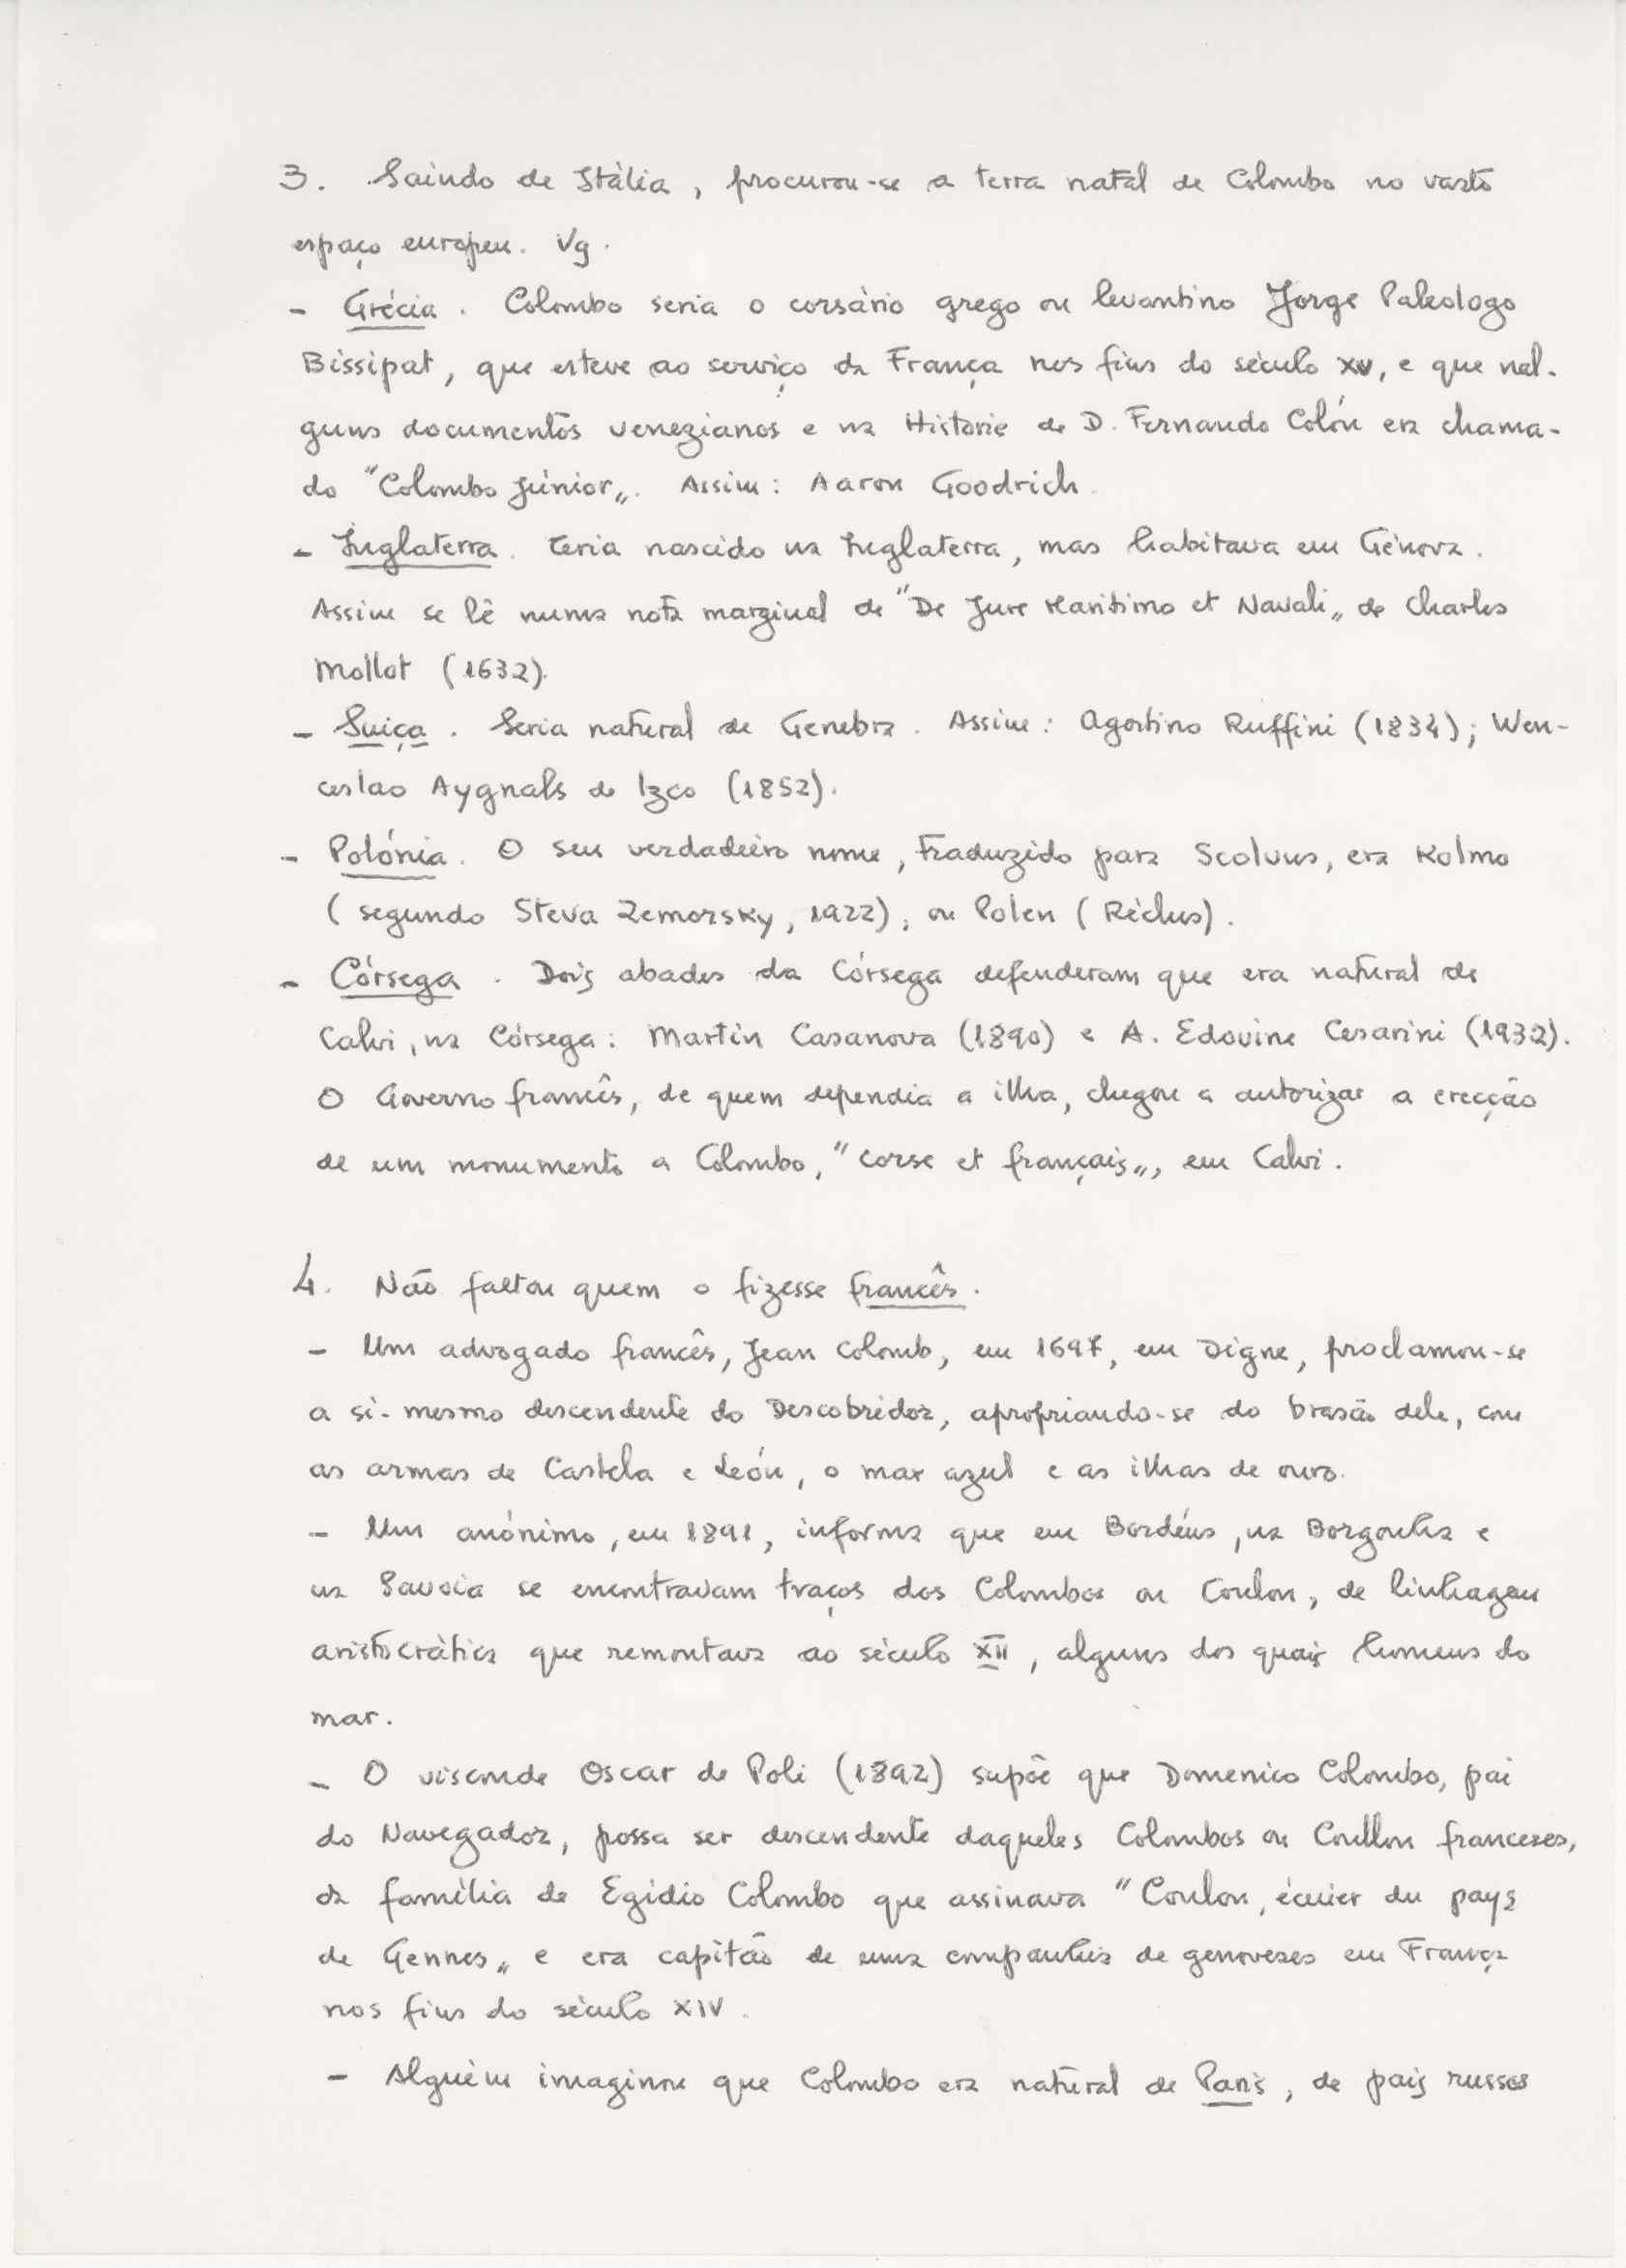 3. Saindo de Itália, procurou-se a terra natal de Colombo no vasto
espaço europeu. Vg.
- Grécia. Colombo seria o corsário grego ou levantino Jorge Paleologo
Bissipat, que esteve ao serviço da França nos fins do século XV, e que nal-
guns documentos venezianos e na Historie de D. Fernando Colón era chama-
do "Colombo Júnior„. Assim: Aaron Goodrich.
- Inglaterra. Teria nascido na Inglaterra, mas habitava em Génova.
Assim se lê numa nota marginal de "De Jure Maritimo et Navali„ de Charles
Mollot (1632).
- Suiça. Seria natural de Genebra. Assim: Agostino Ruffini (1834); Wen-
ceslao Aygnals de Izco (1852).
- Polónia. O seu verdadeiro nome, traduzido para Scolvus, era Kolmo
(segundo Steva Zemorsky, 1922), ou Polen (Réclus).
- Córsega. Dois abades da Córsega defenderam que era natural de
Calvi, na Córsega: Martin Casanova (1890) e A. Edovine Cesarini (1932).
O Governo francês, de quem dependia a ilha, chegou a autorizar a erecção
de um monumento a Colombo, "corse et français„, em Calvi.
4. Não faltou quem o fizesse francês.
- Um advogado francês, Jean Colomb, em 1697, em Digne, proclamou-se
a si-mesmo descendente do Descobridor, apropriando-se do brasão dele, com
as armas de Castela e León, o mar azul e as ilhas de ouro.
- Um anónimo, em 1891, informa que em Bordéus, na Borgonha e
na Savoia se encontravam traços dos Colombos ou Coulon, de linhagem
aristocrática que remontava ao século XII, alguns dos quais homens do
mar.
- O visconde Oscar de Poli (1892) supõe que Domenico Colombo, pai
do Navegador, possa ser descendente daqueles Colombos ou Coullon franceses,
da família de Egídio Colombo que assinava "Coulon, écuier du pays
de Gennes„ e era capitão de uma companhia de genoveses em França
nos fins do século XIV.
- Alguém imaginou que Colombo era natural de Paris, de pais russos